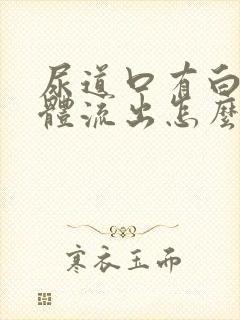 尿道口有白
體流出怎麼
寒衣玉而